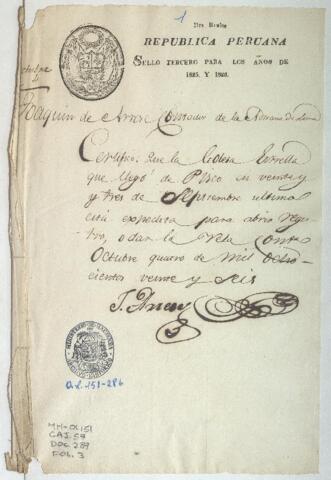 1
Dos Reales
REPUBLICA PERUANA
SELLO TERCERO PARA LOS AÑOS DE
1825. Y 1826.
Joaquin de Contador de la Aduana de Lima
Certifico: Que la Goleta Estrella
que llegó de Pisco en veinte y
y tres de Septiembre ultimo
está expedita para abrir regis
tro, o dar la vela
Octubre quatro de mil ocho
cientos veinte y seis
MINISTERIO DE HACIENDA
O.L. 151-286
MH-OL151
CAJ. 57
DOC 289
FOL. 3